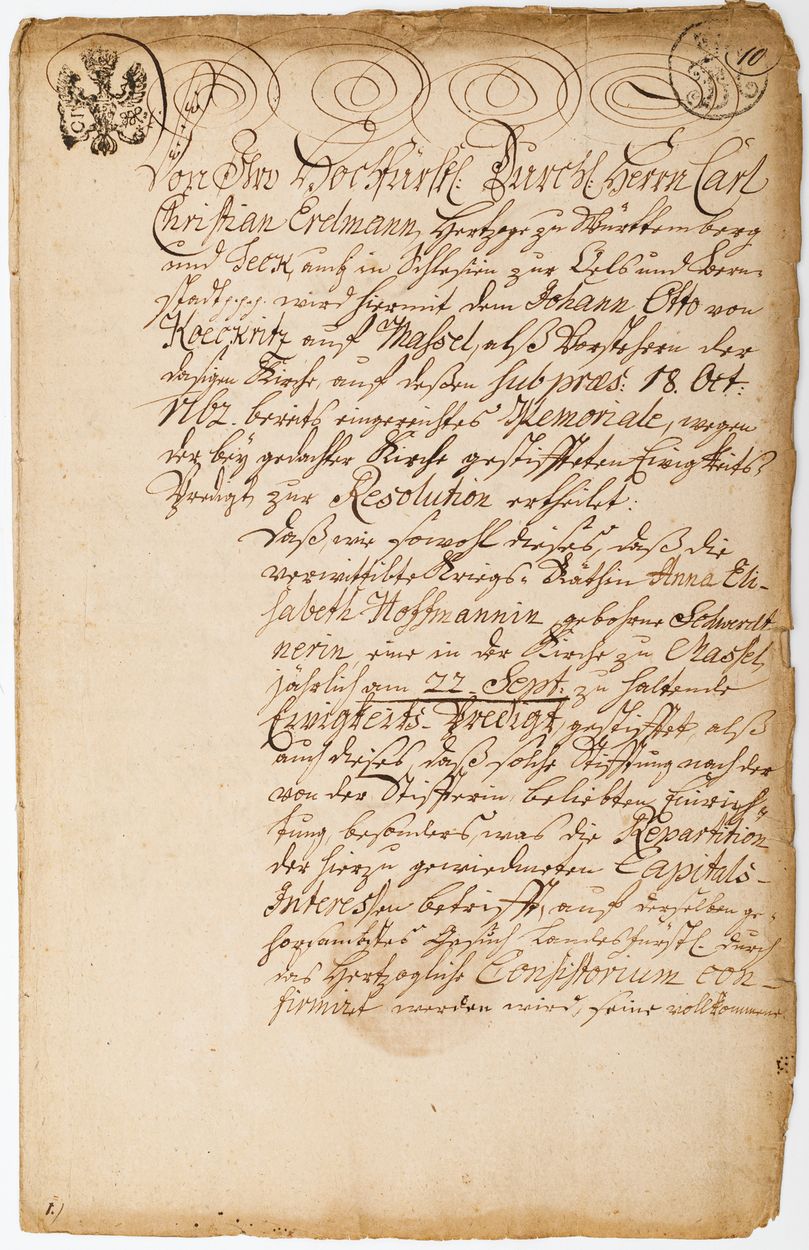 10
Von Ihro Hochfürstl: Durchl: Herrn Carl
Christian Erdmann, Hertzoge zu Württemberg
und Teck, auch in Schlesien zur Oels und Bern-
stadt p.p.p. wird hiermit dem Johann Otto von
Koeckritz auf Massel, alß Vorstehern der
dasigen Kirche, auf deßen sub præs: 18. Oct:
1762. bereits eingereichtes Memoriale, wegen
der bey gedachter Kirche gestiffteten Ewigkeits-
Predigt, zur Resolution ertheilet:
Daß, wie sowohl dieses, daß die
verwittibte Kriegs-Räthin Anna Eli-
sabeth Hoffmannin, gebohrne Schwerdt-
nerin, eine in der Kirche zu Massel,
jährlich am 22. Sept. zu haltende
Ewigkeits-Predigt, gestifftet, alß
auch dieses, daß solche Stifftung nach der
von der Stiffterin beliebten Einrich-
tung, besonders, was die Repartition
der hierzu gewiedmeten Capitals-
Interessen betrifft, auf derselben ge-
horsambstes Gesuch Landesfürstl. durch
das Hertzogliche Consistorium con-
firmiret werden wird, seine vollkommene
1.)